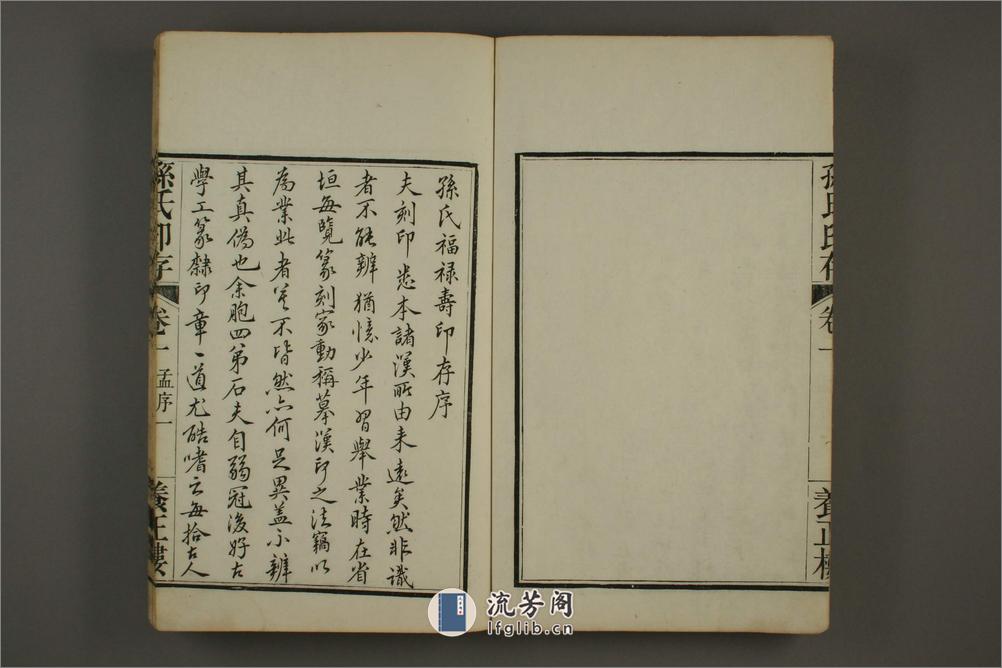 孫氏印存
卷一
養正樓
孫氏福祿壽印存序
夫刻印悉本諸漢所由来遠矣然非識
者不能辨猶憶少年習舉業時在省
垣每覽篆刻家動稱摹漢印之法竊以
為業此者莫不皆然亦何足異盖不辨
其真偽也余胞四弟石夫自弱冠後好古
學工篆隸印章一道尤酷嗜之每拾古人
孫氏印存
卷一
孟序一
養正樓
流芳阁
lfglib.cn